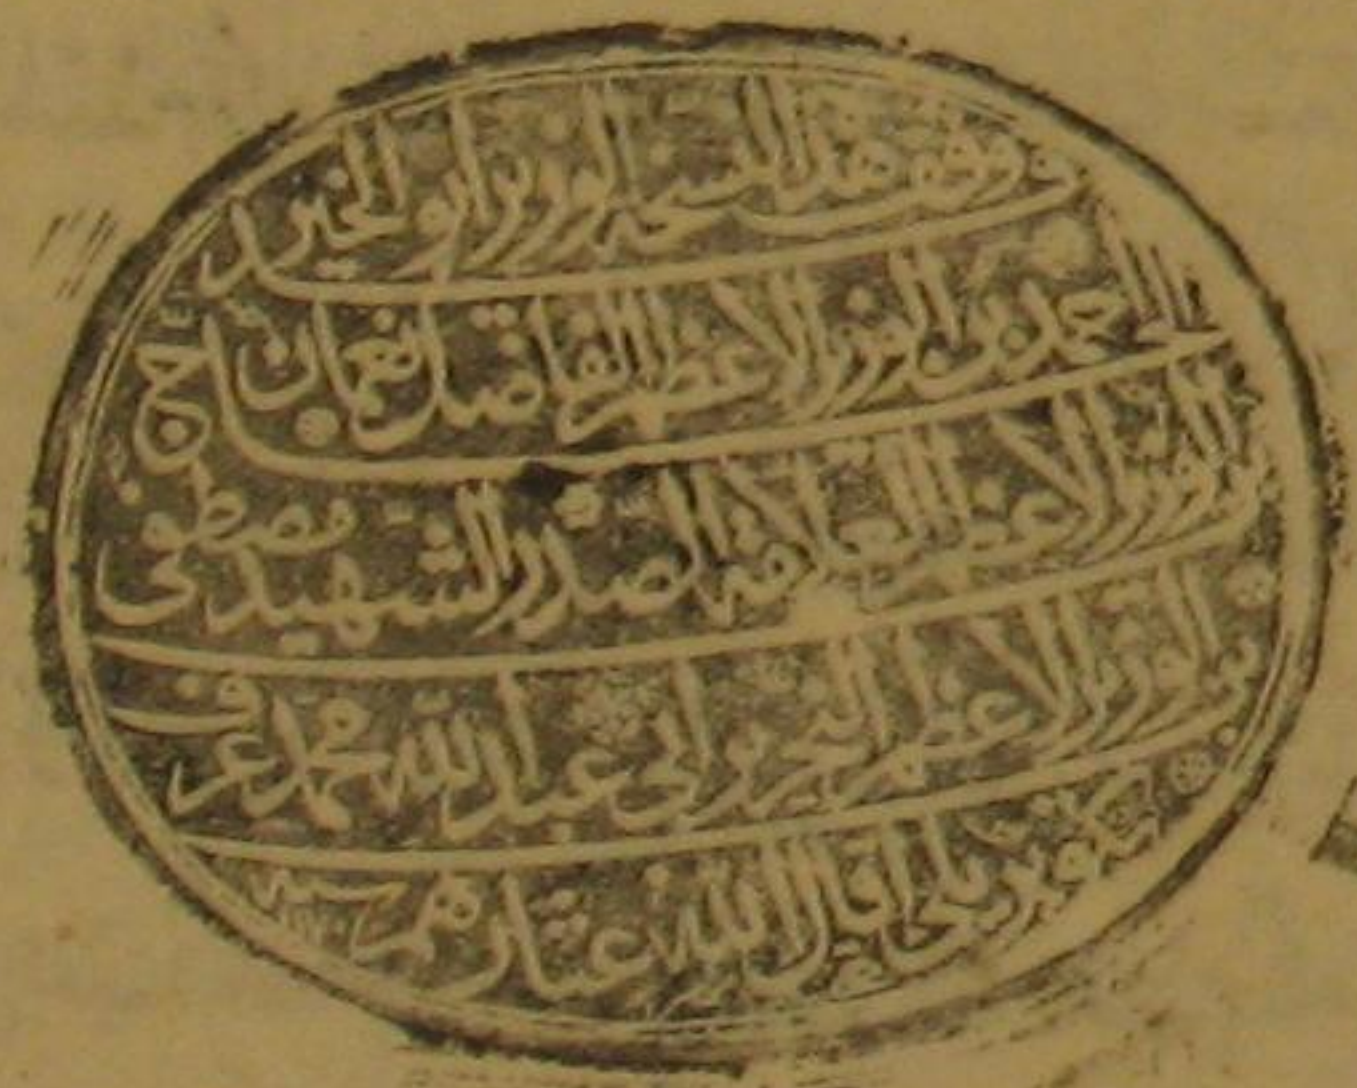 وقف هذا النسخه الوزير ابو الخير
الحاج احمد بن الوزير الاعظم الفاضل نعمان
بن الوزير الاعظم العلامه الصدر الشهيد مصطفى
بن الوزير الاعظم النحرير ابي عبد الله محمد عرف
بكوپريلي اقال الله عثارهم